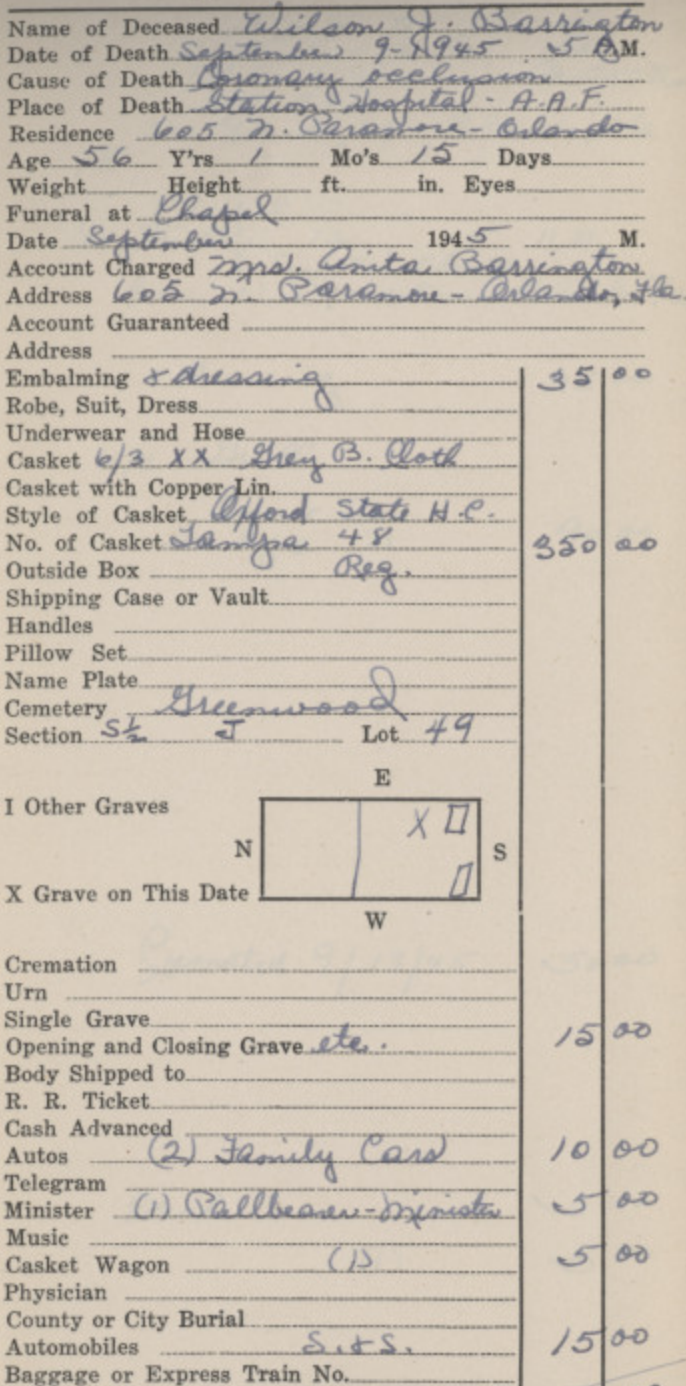 Name of Deceased Wilson J. Barrington
Date of Death September 9-1945 5 A.M.
Cause of Death Coronary occlusion
Place of Death Station Hospital - A.A.F.
Residence 605 N. Paramore - Orlando
Age 56 Y'rs 1 Mo's 15 Days
Weight Height ft. in. Eyes
Funeral at Chapel
Date September 1945 M.
Account Charged Mrs. Anita Barrington
Address 605 N. Paramore - Orlando, Fla.
Account Guaranteed
Address
Embalming & dressing 35 00
Robe, Suit, Dress
Underwear and Hose
Casket 6/3 XX Grey B. Cloth
Casket with Copper Lin.
Style of Casket Oxford State H.C.
No. of Casket Tampa 48 350 00
Outside Box Reg.
Shipping Case or Vault
Handles
Pillow Set
Name Plate
Cemetery Greenwood
Section S½ J Lot 49
E
I Other Graves
X
N
S
X Grave on This Date
W
Cremation
Urn
Single Grave
Opening and Closing Grave etc. 15 00
Body Shipped to
R. R. Ticket
Cash Advanced
Autos (2) Family Cars 10 00
Telegram
Minister (1) Pallbearer-Minister 5 00
Music
Casket Wagon (1) 5 00
Physician
County or City Burial
Automobiles S. & S. 15 00
Baggage or Express Train No.